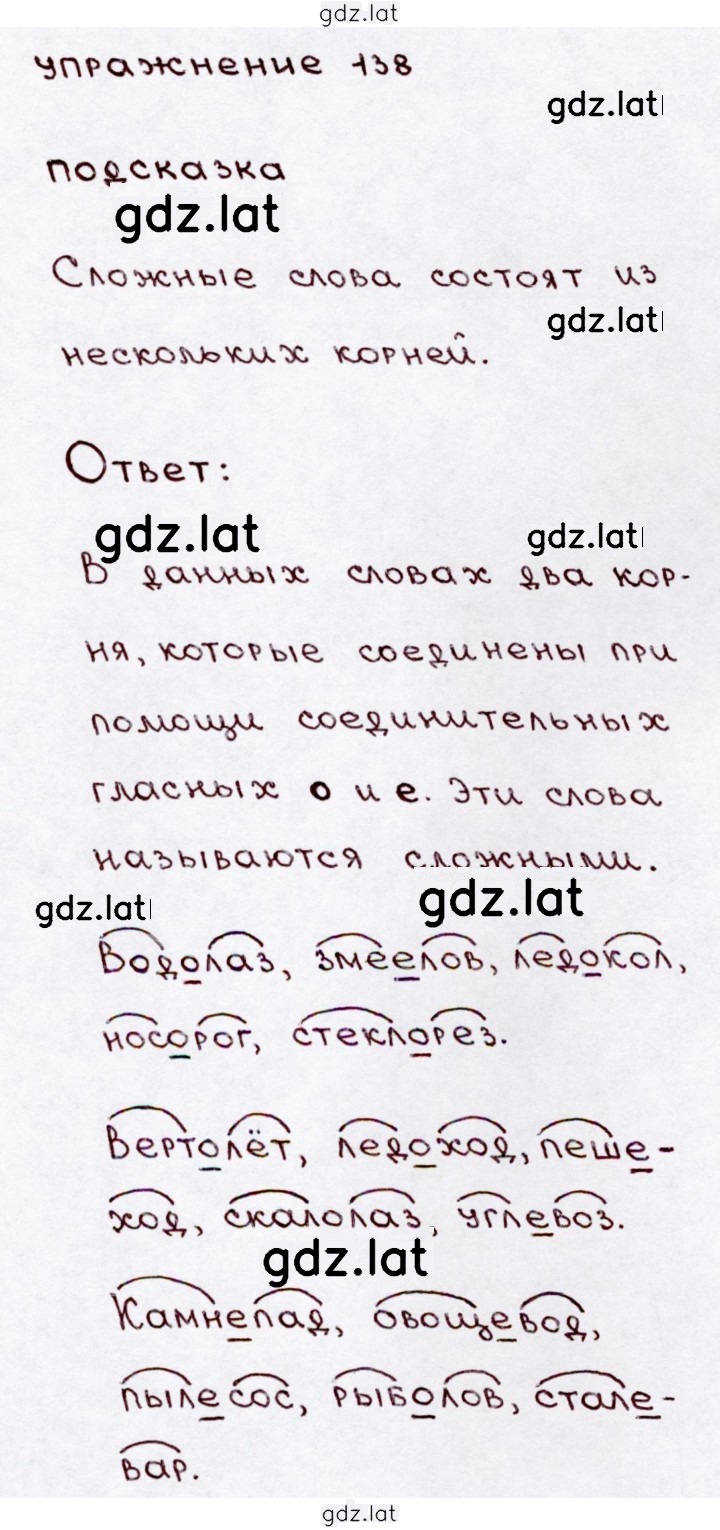 gdz.lat
упражнение 138
gdz.lat
подсказка
gdz.lat
Сложные слова состоят из
gdz.lat
нескольких корней.
Ответ:
gdz.lat gdz.lat
В данных словах два кор-
ня, которые соединены при
помощи соединительных
гласных о и е. Эти слова
называются сложными.
gdz.lat gdz.lat
Водолаз, змеелов, ледокол,
носорог, стеклорез.
Вертолёт, ледоход, пеше-
ход, скалолаз, углевоз.
gdz.lat
Камнепад, овощевод,
пылесос, рыболов, стале-
вар.
gdz.lat